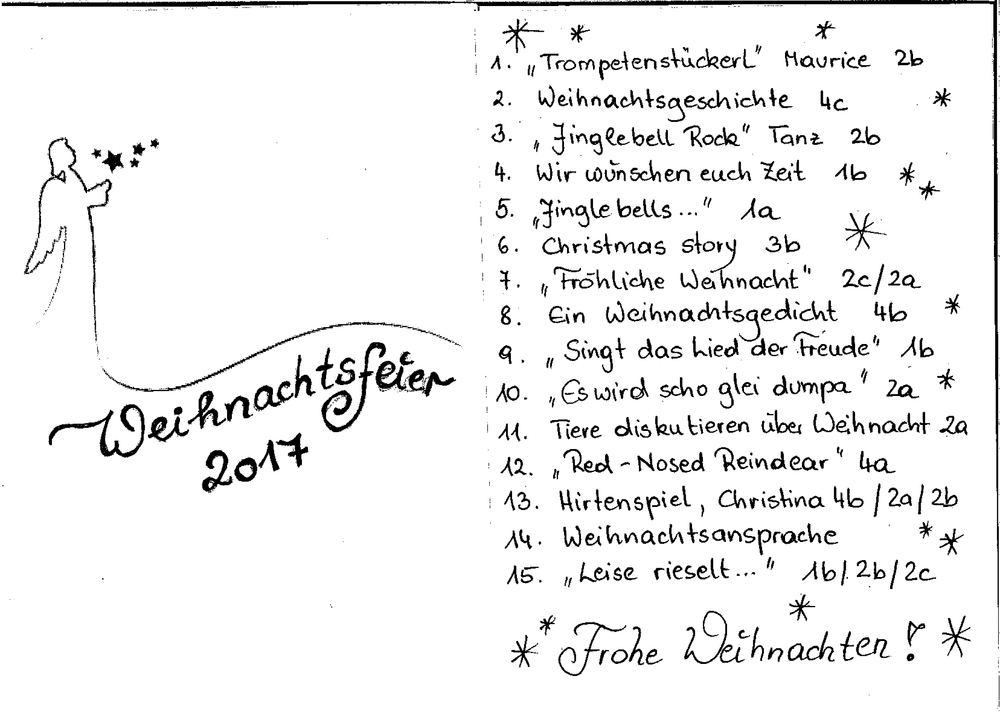 Weihnachtsfeier
2017
1. „Trompetenstückerl" Maurice 2b
2. Weihnachtsgeschichte 4c
3. „Jinglebell Rock" Tanz 2b
4. Wir wünschen euch Zeit 1b
5. „Jingle bells..." 1a
6. Christmas story 3b
7. „Fröhliche Weihnacht" 2c/2a
8. Ein Weihnachtsgedicht 4b
9. „Singt das Lied der Freude" 1b
10. „Es wird scho glei dumpa" 2a
11. Tiere diskutieren über Weihnacht 2a
12. „Red-Nosed Reindear" 4a
13. Hirtenspiel, Christina 4b/2a/2b
14. Weihnachtsansprache
15. „Leise rieselt..." 1b/2b/2c
Frohe Weihnachten!